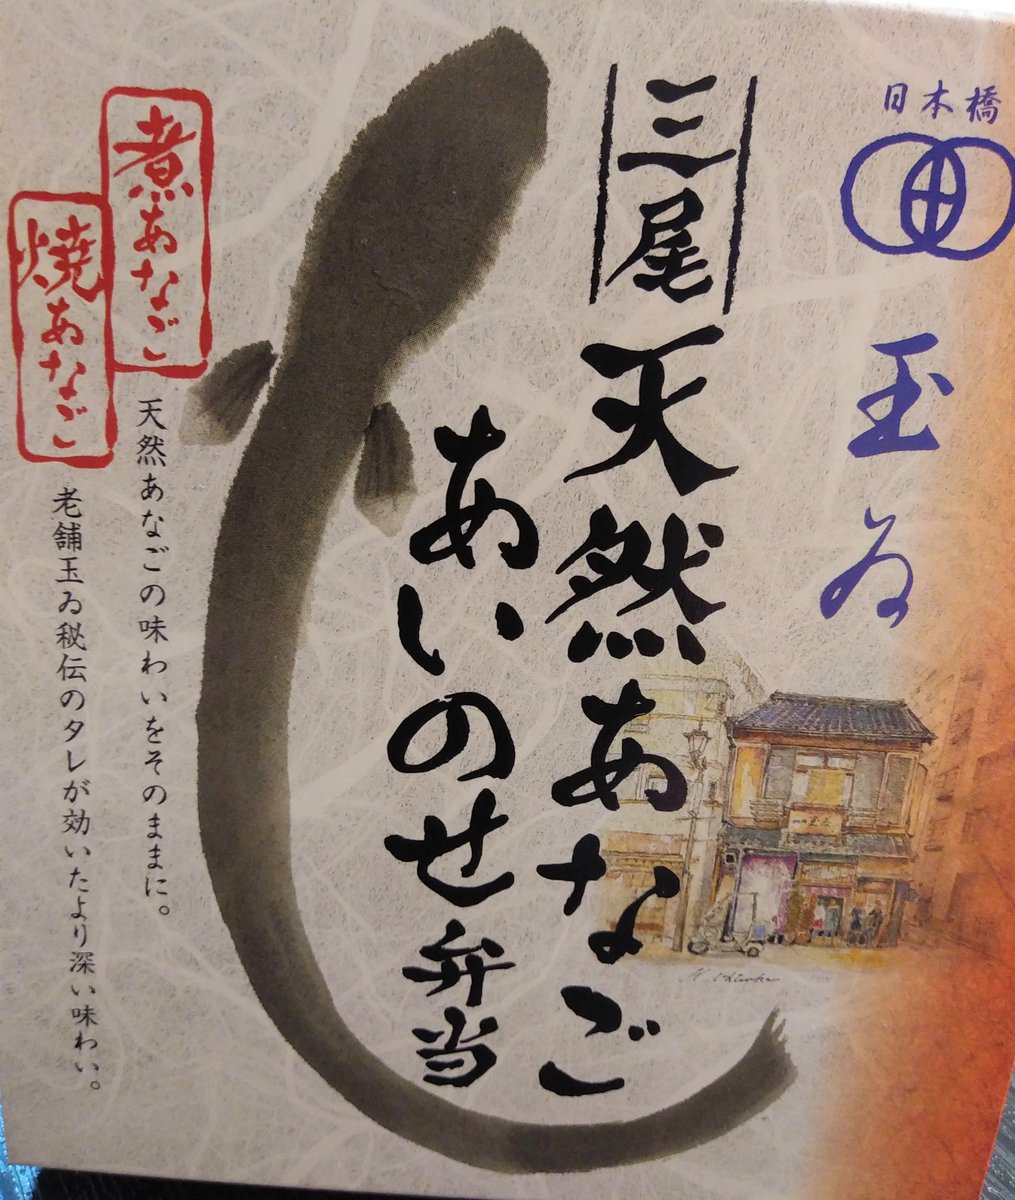 日本橋
玉ゐ
三尾
天然あなご
あいのせ弁当
煮あなご
焼あなご
天然あなごの味わいをそのままに。
老舗玉ゐ秘伝のタレが効いたより深い味わい。